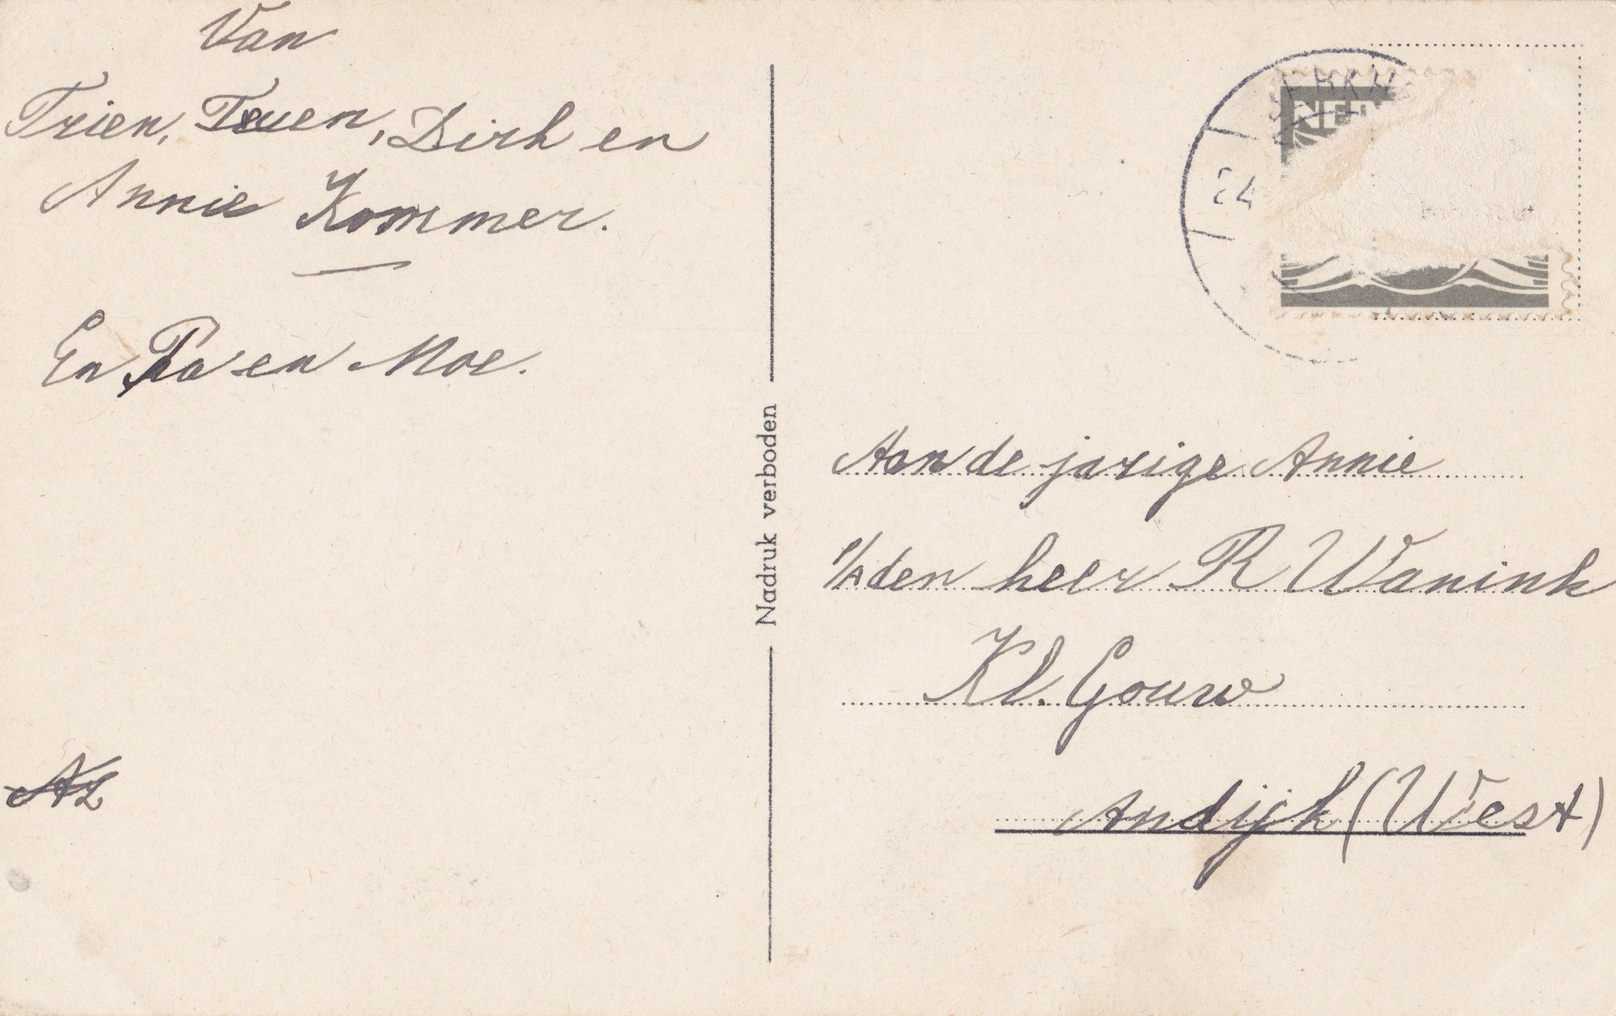 Van
Trien, Teuen, Dirk en
Annie Kommer.
En Pa en Moe.
Nadruk verboden
NE
24
Aan de jarige Annie
P/A den heer R Wanink
Kl. Gouw
Andijk (West)